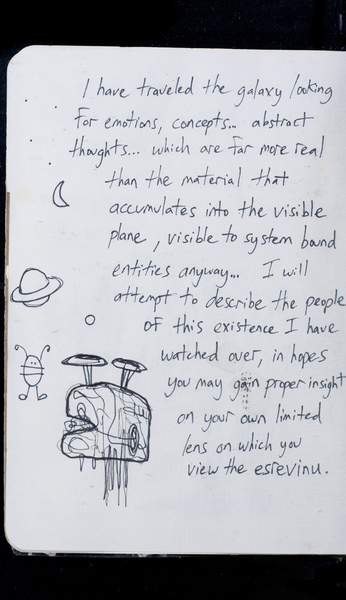 I have traveled the galaxy looking
for emotions, concepts... abstract
thoughts... which are far more real
than the material that
accumulates into the visible
plane, visible to system bound
entities anyway... I will
attempt to describe the people
of this existence I have
watched over, in hopes
you may gain proper insight
on your own limited
lens on which you
view the esrevinu.